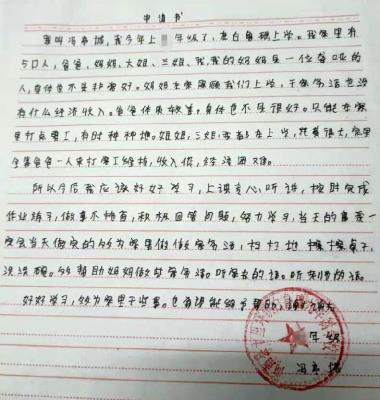 申请书
我叫冯
我今年上 年级了,在白鲁础上学。我家里有
5口人,爸爸、妈妈、大姐、三姐、我,我的妈妈是一位聋哑的
人,身体也不是特别好。妈妈在家照顾我们上学,干家务活也没
有什么经济收入。爸爸体质较差,身体也不是很好。只能在家
里打点零工,有时种种地。姐姐,三姐,我都在上学,花费很大,家里
全靠爸爸一人来打零工维持,收入低,经济困难。
所以今后我应该好好学习,上课专心听讲,按时完成
作业练习,做事不拖查,积极回答问题,努力学习,当天的事要一
定会当天做完的
为家里做做家务活,扫扫地 擦擦桌子,
洗洗碗。 帮助妈妈做些家务活。听家长的话。听老师的话。
好好学习, 为家里干些事。也希望能给予帮助,
年级
冯